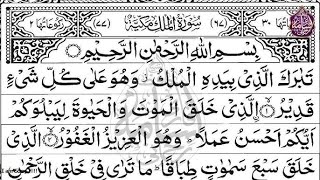 اٰیَاتُہَا ٣٠ (٦٧) سُوْرَۃُ الْمُلْکِ مَکِّیَّۃٌ (٧٧) رُکُوْعَاتُہَا ٢
بِسْمِ اللهِ الرَّحْمٰنِ الرَّحِیْمِ
تَبٰرَكَ الَّذِیْ بِیَدِهِ الْمُلْكُ وَهُوَ عَلٰی كُلِّ شَیْءٍ
قَدِیْرُ ۙ﴿١﴾ اِۨلَّذِیْ خَلَقَ الْمَوْتَ وَالْحَیٰوةَ لِیَبْلُوَكُمْ
اَیُّكُمْ اَحْسَنُ عَمَلًا ؕ وَهُوَ الْعَزِیْزُ الْغَفُوْرُ ۙ﴿٢﴾ الَّذِیْ
خَلَقَ سَبْعَ سَمٰوٰتٍ طِبَاقًا ؕ مَا تَرٰی فِیْ خَلْقِ الرَّحْمٰنِ